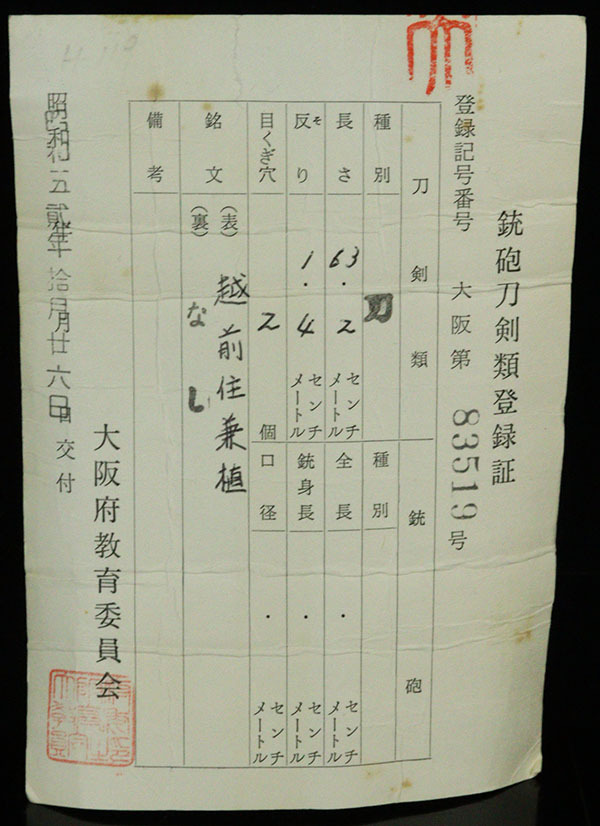 銃砲刀剣類登録証
登録記号番号 大阪第 83519 号
刀剣類 銃砲
種別 刀 種別
長さ 63.2 センチメートル 全長 . センチメートル
反り そ 1.4 センチメートル 銃身長 . センチメートル
目くぎ穴 2 個 口径 . センチメートル
銘文 (表) 越前住兼植
(裏) なし
備考
昭和 五 弐年 拾月 廿六日 交付
大阪府教育委員会